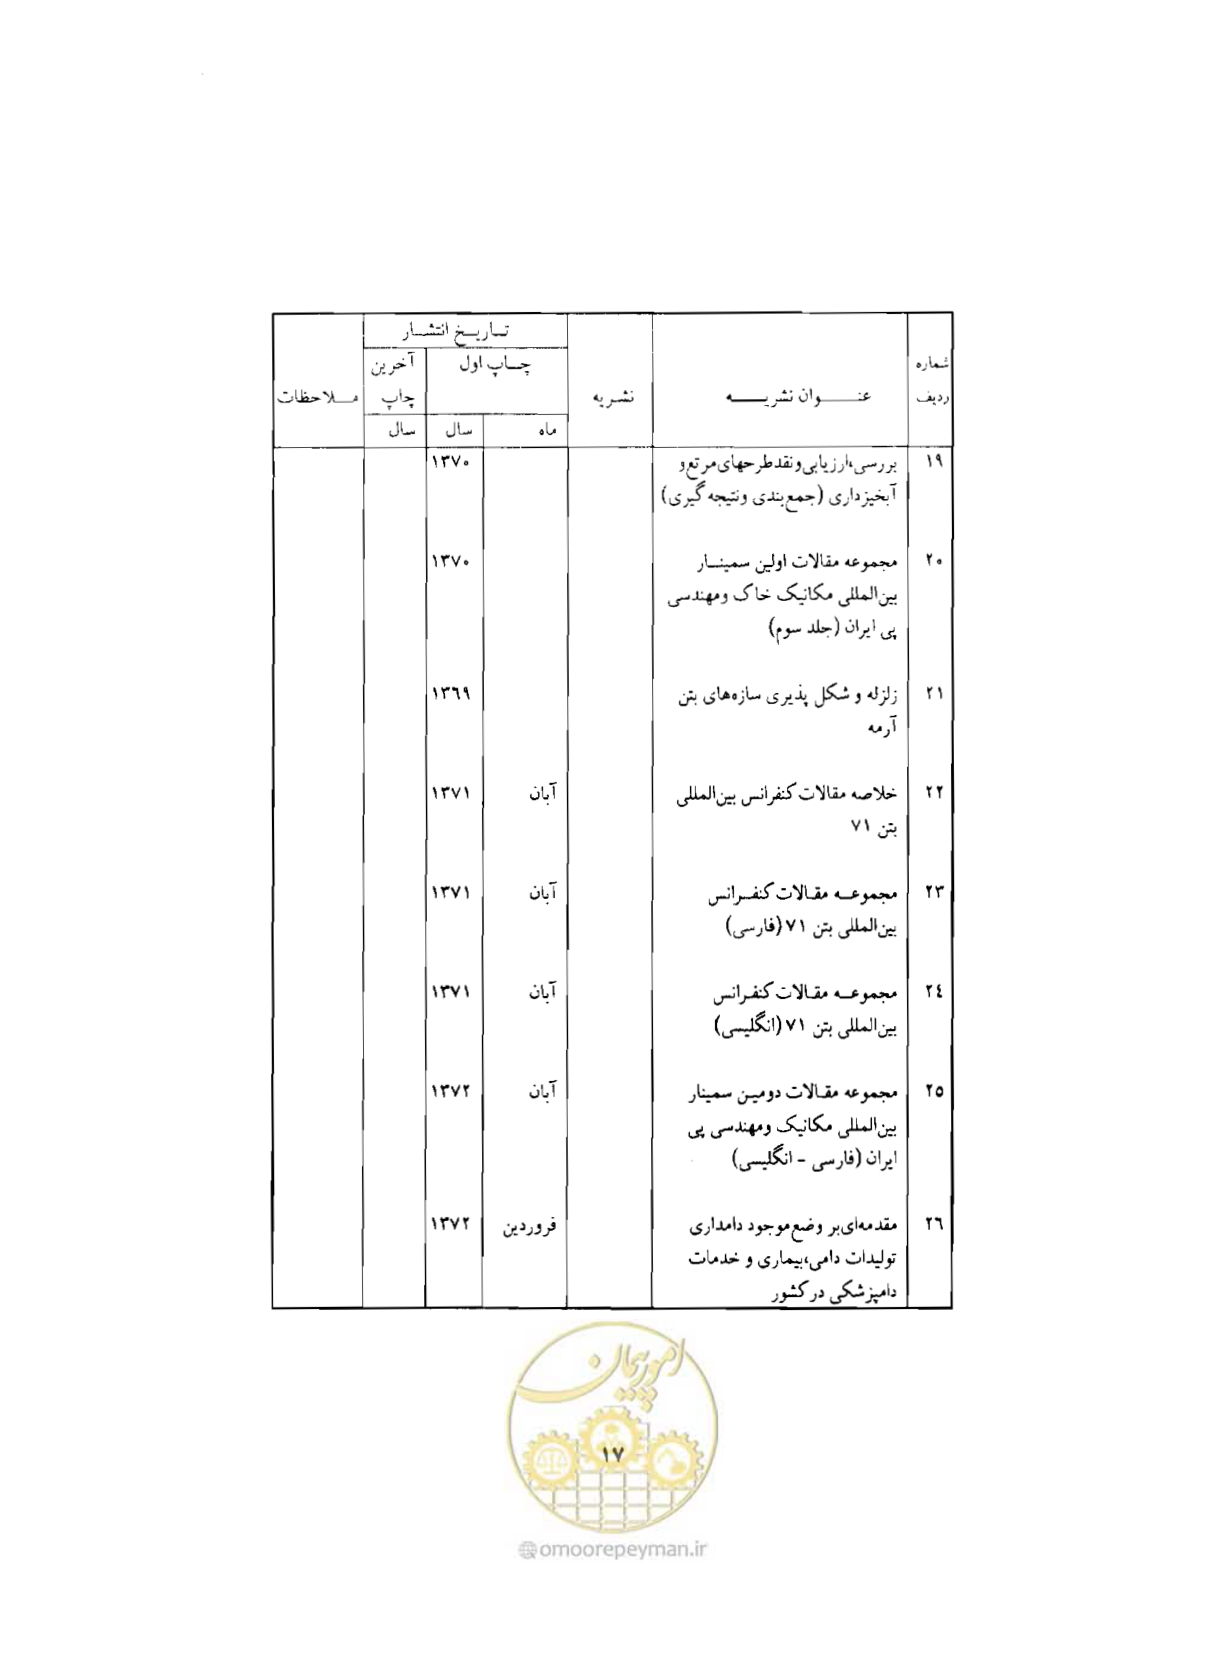 تاریخ انتشار
شماره چاپ اول آخرین
ردیف عنوان نشریه نشریه چاپ ملاحظات
ماه سال سال
۱۹ بررسی،ارزیابی ونقدطرحهای مرتع و ۱۳۷۰
آبخیزداری (جمع‌بندی ونتیجه گیری)
۲۰ مجموعه مقالات اولین سمینار ۱۳۷۰
بین‌المللی مکانیک خاک ومهندسی
پی ایران (جلد سوم)
۲۱ زلزله و شکل پذیری سازه‌های بتن ۱۳۶۹
آرمه
۲۲ خلاصه مقالات کنفرانس بین‌المللی آبان ۱۳۷۱
بتن ۷۱
۲۳ مجموعه مقالات کنفرانس آبان ۱۳۷۱
بین‌المللی بتن ۷۱ (فارسی)
۲۴ مجموعه مقالات کنفرانس آبان ۱۳۷۱
بین‌المللی بتن ۷۱ (انگلیسی)
۲۵ مجموعه مقالات دومین سمینار آبان ۱۳۷۲
بین‌المللی مکانیک ومهندسی پی
ایران (فارسی - انگلیسی)
۲۶ مقدمه‌ای بر وضع موجود دامداری فروردین ۱۳۷۲
تولیدات دامی،بیماری و خدمات
دامپزشکی در کشور
امور پیمان
۱۷
omoorepeyman.ir